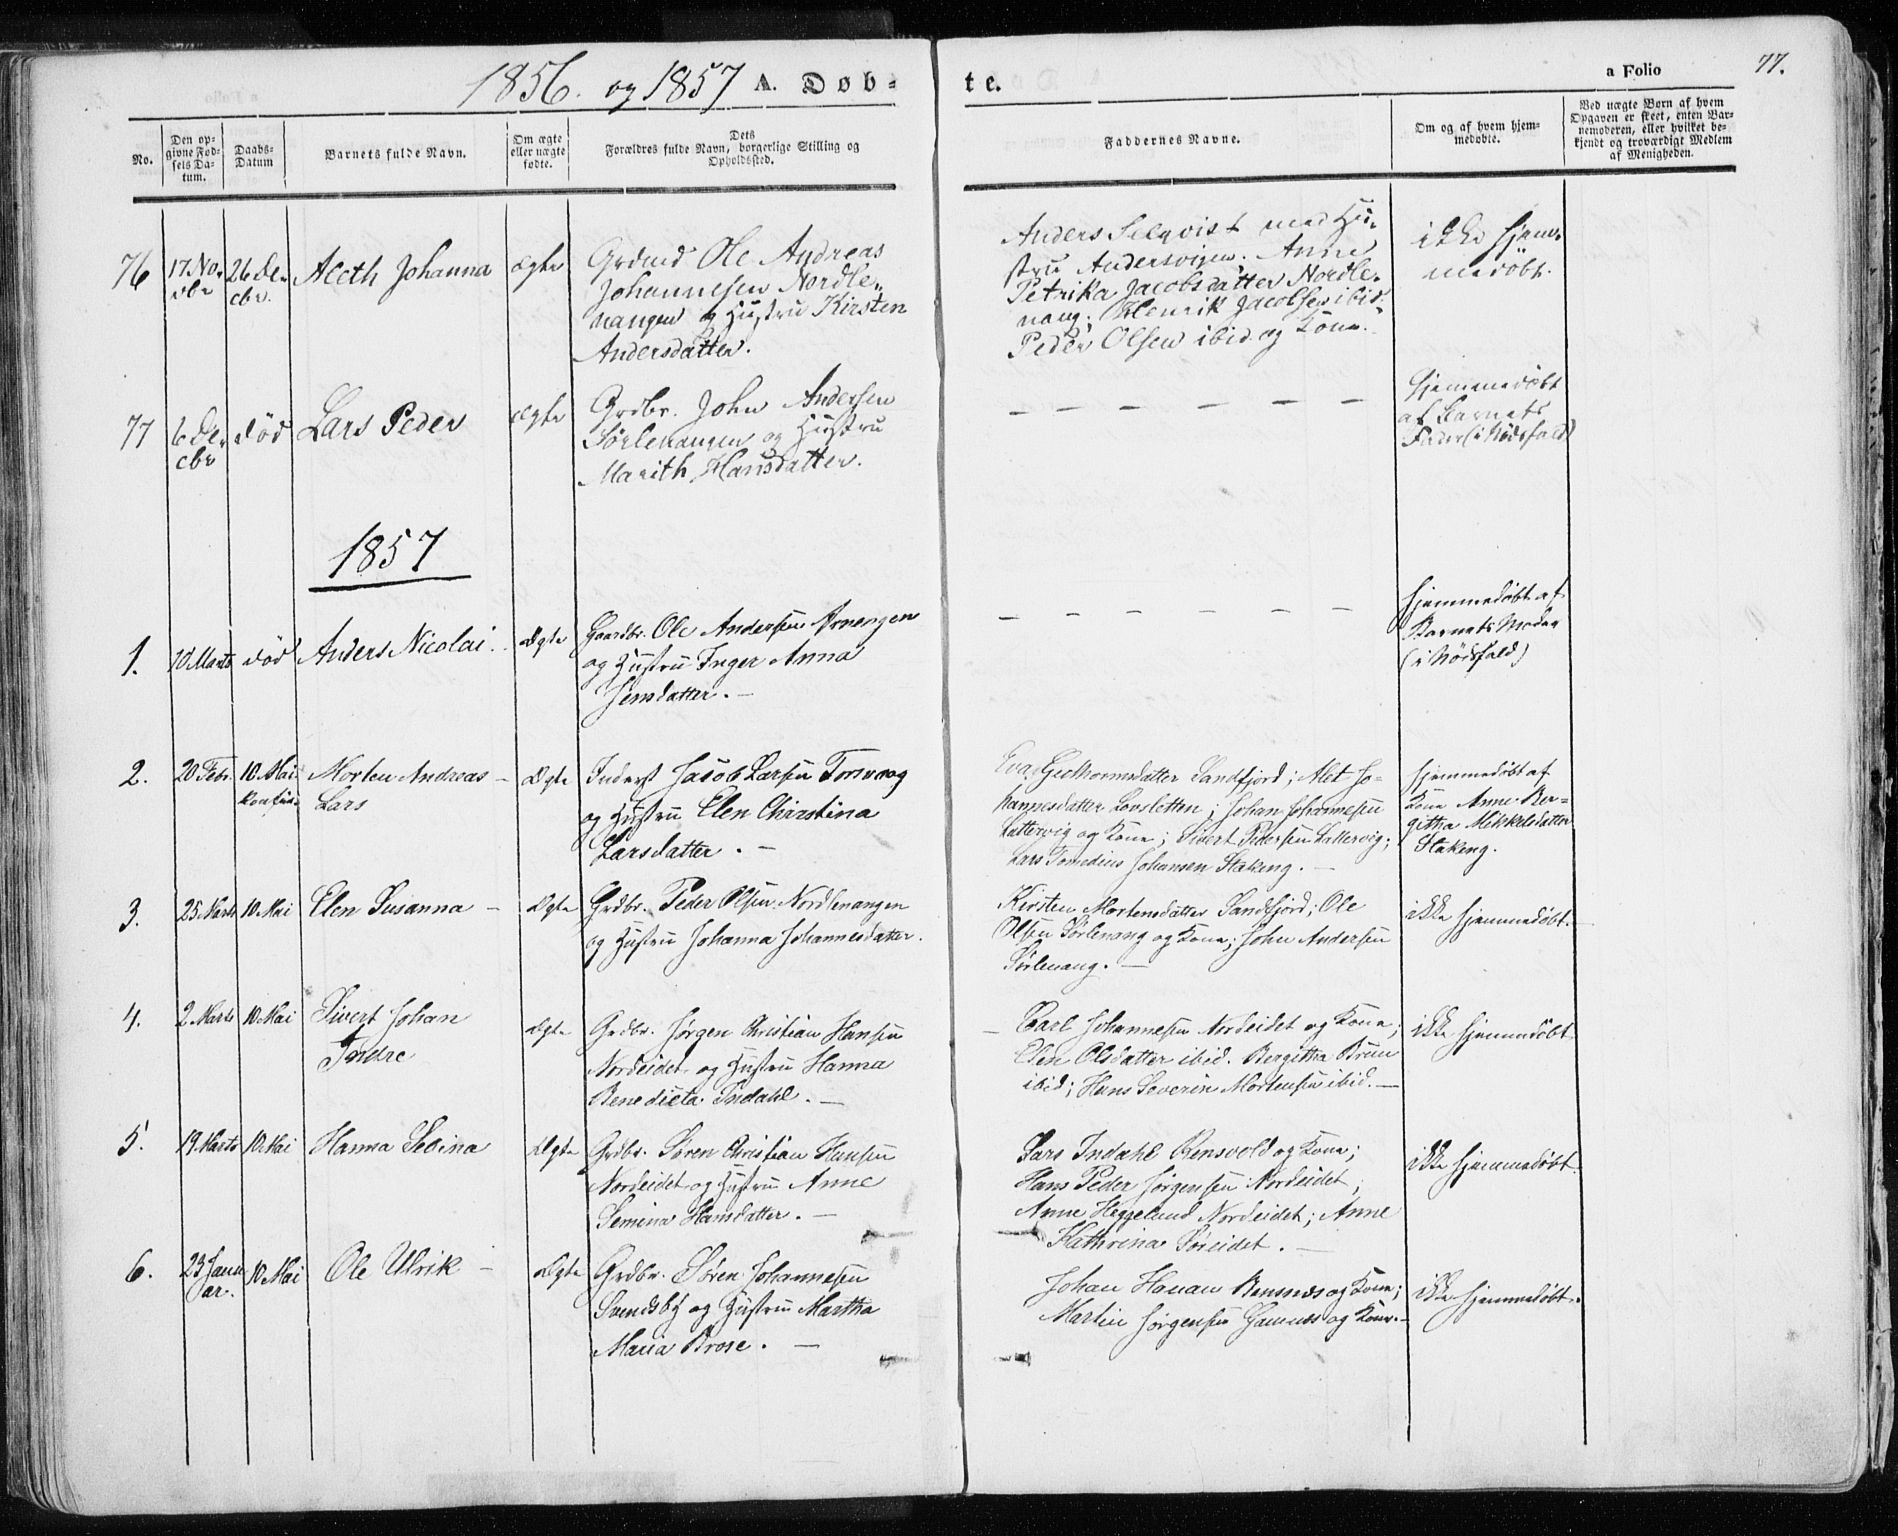 1856. og 1857 A. Døb-
te.
a Folio
77.
No.
Den op-
givne Fød-
sels Da-
tum.
Daabs-
Datum
Barnets fulde Navn.
Om ægte
eller uægte
fødte.
Dets
Forældres fulde Navn, borgerlige Stilling og
Opholdssted.
Faddernes Navne.
Om og af hvem hjem-
medøbte.
Ved uægte Børn af hvem
Opgaven er skeet, enten Bar-
nemoderen, eller hvilket be-
kjendt og troværdigt Medlem
af Menigheden.
76
17 No-
vbr
26 De-
cbr.
Aleth Johanna
ægte
Grdmd Ole Andreas
Johannesen Nordle-
nangen og Hustru Kirsten
Andersdatter.
Anders Selqvist med Hu-
stru Andersvigen. Anne
Petrika Jacobsdatter Nordle-
nang. Henrik Jacobsen ibid.
Peder Olsen ibid. og Kone.
ikke hjem-
medøbt.
77
6 De-
cbr
død
Lars Peder
ægte
Grdbr. John Andersen
Sørlenangen og Hustru
Marith Hansdatter.
— — — — — — —
Hjemmedøbt
af Barnets
Fader (i Nødsfald)
1857
1.
10 Marts
død
Anders Nicolai.
Ægte
Gaardbr. Ole Andersen Arnengen
og Hustru Inger Anna
Jensdatter. —
— — — — — — —
Hjemmedøbt af
Barnets Moder
(i Nødsfald)
2.
20 Febr.
10 Mai
Morten Andreas —
Lars
Ægte
Inderst Jacob Larsen Torsvaag
og Hustru Elen Christina
Larsdatter. —
Eva Guthormsdatter Sandfjord; Alet Jo-
hannesdatter Lovsletten; Johan Johannesen
Lattervig og Kone; Sivert Pedersen Lattervig;
Lars Johansen Stakeng. —
hjemmedøbt af
Kone Anne Ber-
githa Mikkelsdatter
Stakeng.
3.
25 Marts
10 Mai
Elen Susanna —
Ægte
Grdbr. Peder Olsen Nordlenangen
og Hustru Johanna Johannesdatter.
Kirsten Mortensdatter Sandfjord; Ole
Olsen Sørlenang og Kone; John Andersen
Sørlenang. —
ikke hjemmedøbt.
4.
2 Marts
10 Mai
Sivert Johan
Indre
Ægte
Grdbr. Jørgen Christian Hansen
Nordeidet og Hustru Hanna
Benedicta Indahl. —
Carl Johannesen Nordeidet og Kone;
Elen Olsdatter ibid. Bergitha Bruun
ibid; Hans Severin Mortensen ibid. —
ikke hjemmedøbt.
5.
19 Marts
10 Mai
Hanna Sedina
Ægte
Grdbr. Søren Christian Hansen
Nordeidet og Hustru Anne
Semina Hansdatter. —
Lars Indahl Rensvold og Kone;
Hans Peder Jørgensen Nordeidet;
Anne Heggelund Nordeidet; Anne
Kathrina Søreidet. —
ikke hjemmedøbt.
6.
23 Janu-
ar.
10 Mai
Ole Ulrik —
Ægte
Grdbr. Søren Johannesen
Svendsby og Hustru Martha
Maria Brose. —
Johan Hanan Rensnæs og Kone;
Martin Jørgensen og Kone. —
ikke hjemmedøbt.